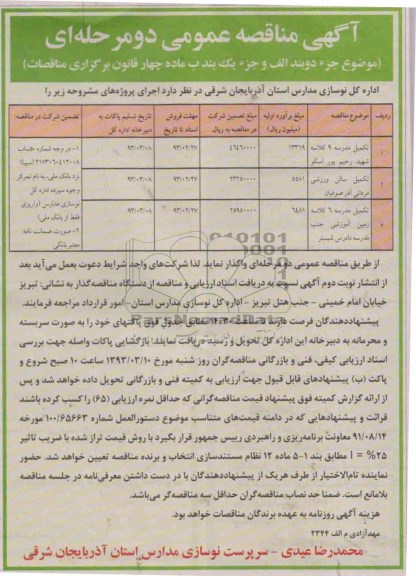 آگهی مناقصه عمومی دومرحله‌ای
(موضوع جزء دوبند الف و جزء یک بند ب ماده چهار قانون برگزاری مناقصات)
اداره کل نوسازی مدارس استان آذربایجان شرقی در نظر دارد اجرای پروژه‌های مشروحه زیر را
ردیف موضوع مناقصه مبلغ برآورد اولیه (میلیون ریال) مبلغ تضمین شرکت در مناقصه به ریال مهلت فروش اسناد تا تاریخ تاریخ تسلیم پاکات به دبیرخانه اداره کل تضمین شرکت در مناقصه
۱ تکمیل مدرسه ۹ کلاسه شهید رحیم پور اسکو ۱۳۳۱۹ ۹۳/۰۲/۲۷ ۹۳/۰۳/۰۸
۲ تکمیل سالن ورزشی ۵۵۸۱ ۹۳/۰۲/۲۷ ۹۳/۰۳/۰۸
۳ تکمیل مدرسه ۶ کلاسه زمین آموزشی جنب مدرسه دادرس شبستر ۶۴۸۱ ۹۳/۰۲/۲۷ ۹۳/۰۳/۰۸
۱- در وجه شماره حساب
نزد بانک ملی، به نام تمرکز
وجوه سپرده اداره کل
نوسازی مدارس (واریزی
فقط از بانک ملی)
۲- صورت ضمانت نامه
معتبر بانکی
از طریق مناقصه عمومی دومرحله‌ای واگذار نماید. لذا شرکت‌های واجد شرایط دعوت بعمل می‌آید بعد
از انتشار نوبت دوم آگهی نسبت به دریافت اسناد ارزیابی و مناقصه از دستگاه مناقصه‌گذار به نشانی: تبریز
خیابان امام خمینی - جنب هتل تبریز - اداره کل نوسازی مدارس استان - امور قرارداد مراجعه فرمایند.
پیشنهاددهندگان فرصت دارند تا ساعت ۱۴:۳۰ مطابق جدول فوق پاکتهای خود را به صورت سربسته
و محرمانه به دبیرخانه این اداره کل تحویل و رسید دریافت نمایند: بازگشایی پاکات واصله جهت بررسی
اسناد ارزیابی کیفی، فنی و بازرگانی مناقصه‌گران روز شنبه مورخ ۱۳۹۳/۰۳/۱۰ ساعت ۱۰ صبح شروع و
پاکت (ب) پیشنهادهای قابل قبول جهت ارزیابی به کمیته فنی و بازرگانی تحویل داده خواهد شد و پس
از ارائه گزارش کمیته فوق پیشنهاد قیمت مناقصه‌گرانی که حداقل نمره ارزیابی (۶۵) را کسب کرده باشند
قرائت و پیشنهادهایی که در دامنه قیمت‌های متناسب موضوع دستورالعمل شماره ۱۰۰/۶۵۶۶۳ مورخه
۹۱/۰۸/۱۴ معاونت برنامه‌ریزی و راهبردی رییس جمهور قرار بگیرد با روش قیمت تراز شده با ضریب تاثیر
۲۵% = I مطابق بند ۱-۵ ماده ۱۲ نظام مستندسازی انتخاب و برنده مناقصه تعیین خواهد شد. حضور
نماینده تام‌الاختیار از طرف هریک از پیشنهاددهندگان با در دست داشتن معرفی‌نامه در جلسه مناقصه
بلامانع است. ضمنا حد نصاب مناقصه‌گران حداقل سه مناقصه‌گر می‌باشد.
هزینه آگهی روزنامه به عهده برندگان مناقصات خواهد بود.
مهدآزادی م الف ۲۳۴۴
محمدرضا عیدی - سرپرست نوسازی مدارس استان آذربایجان شرقی